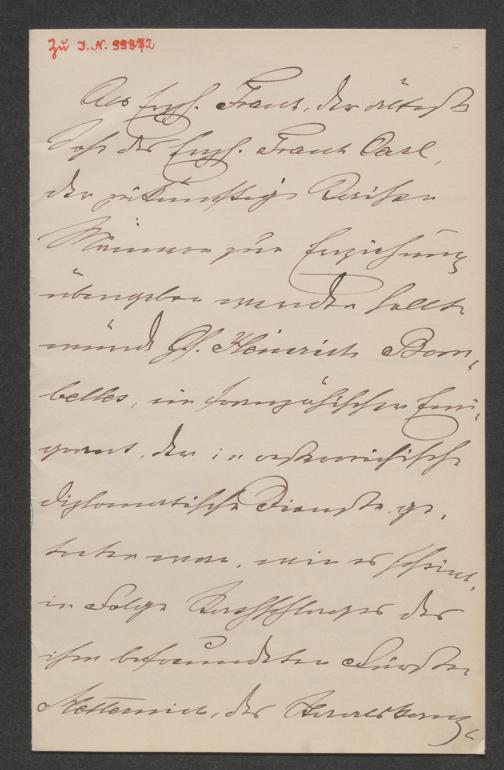 Zu I.N. 99872
Als Erzh. Franz, der älteste
Sohn des Erzh. Franz Carl,
der zukünftige Kaiser
Männern zur Erziehung
übergeben werden sollte
wurde Gf. Heinrich Bom-
belles, ein französischer Emi-
grant, der in oesterreichische
diplomatische Dienste ge-
treten war, wie es scheint,
in Folge Vorschlages des
ihm befreundeten Fürsten
Metternich, des